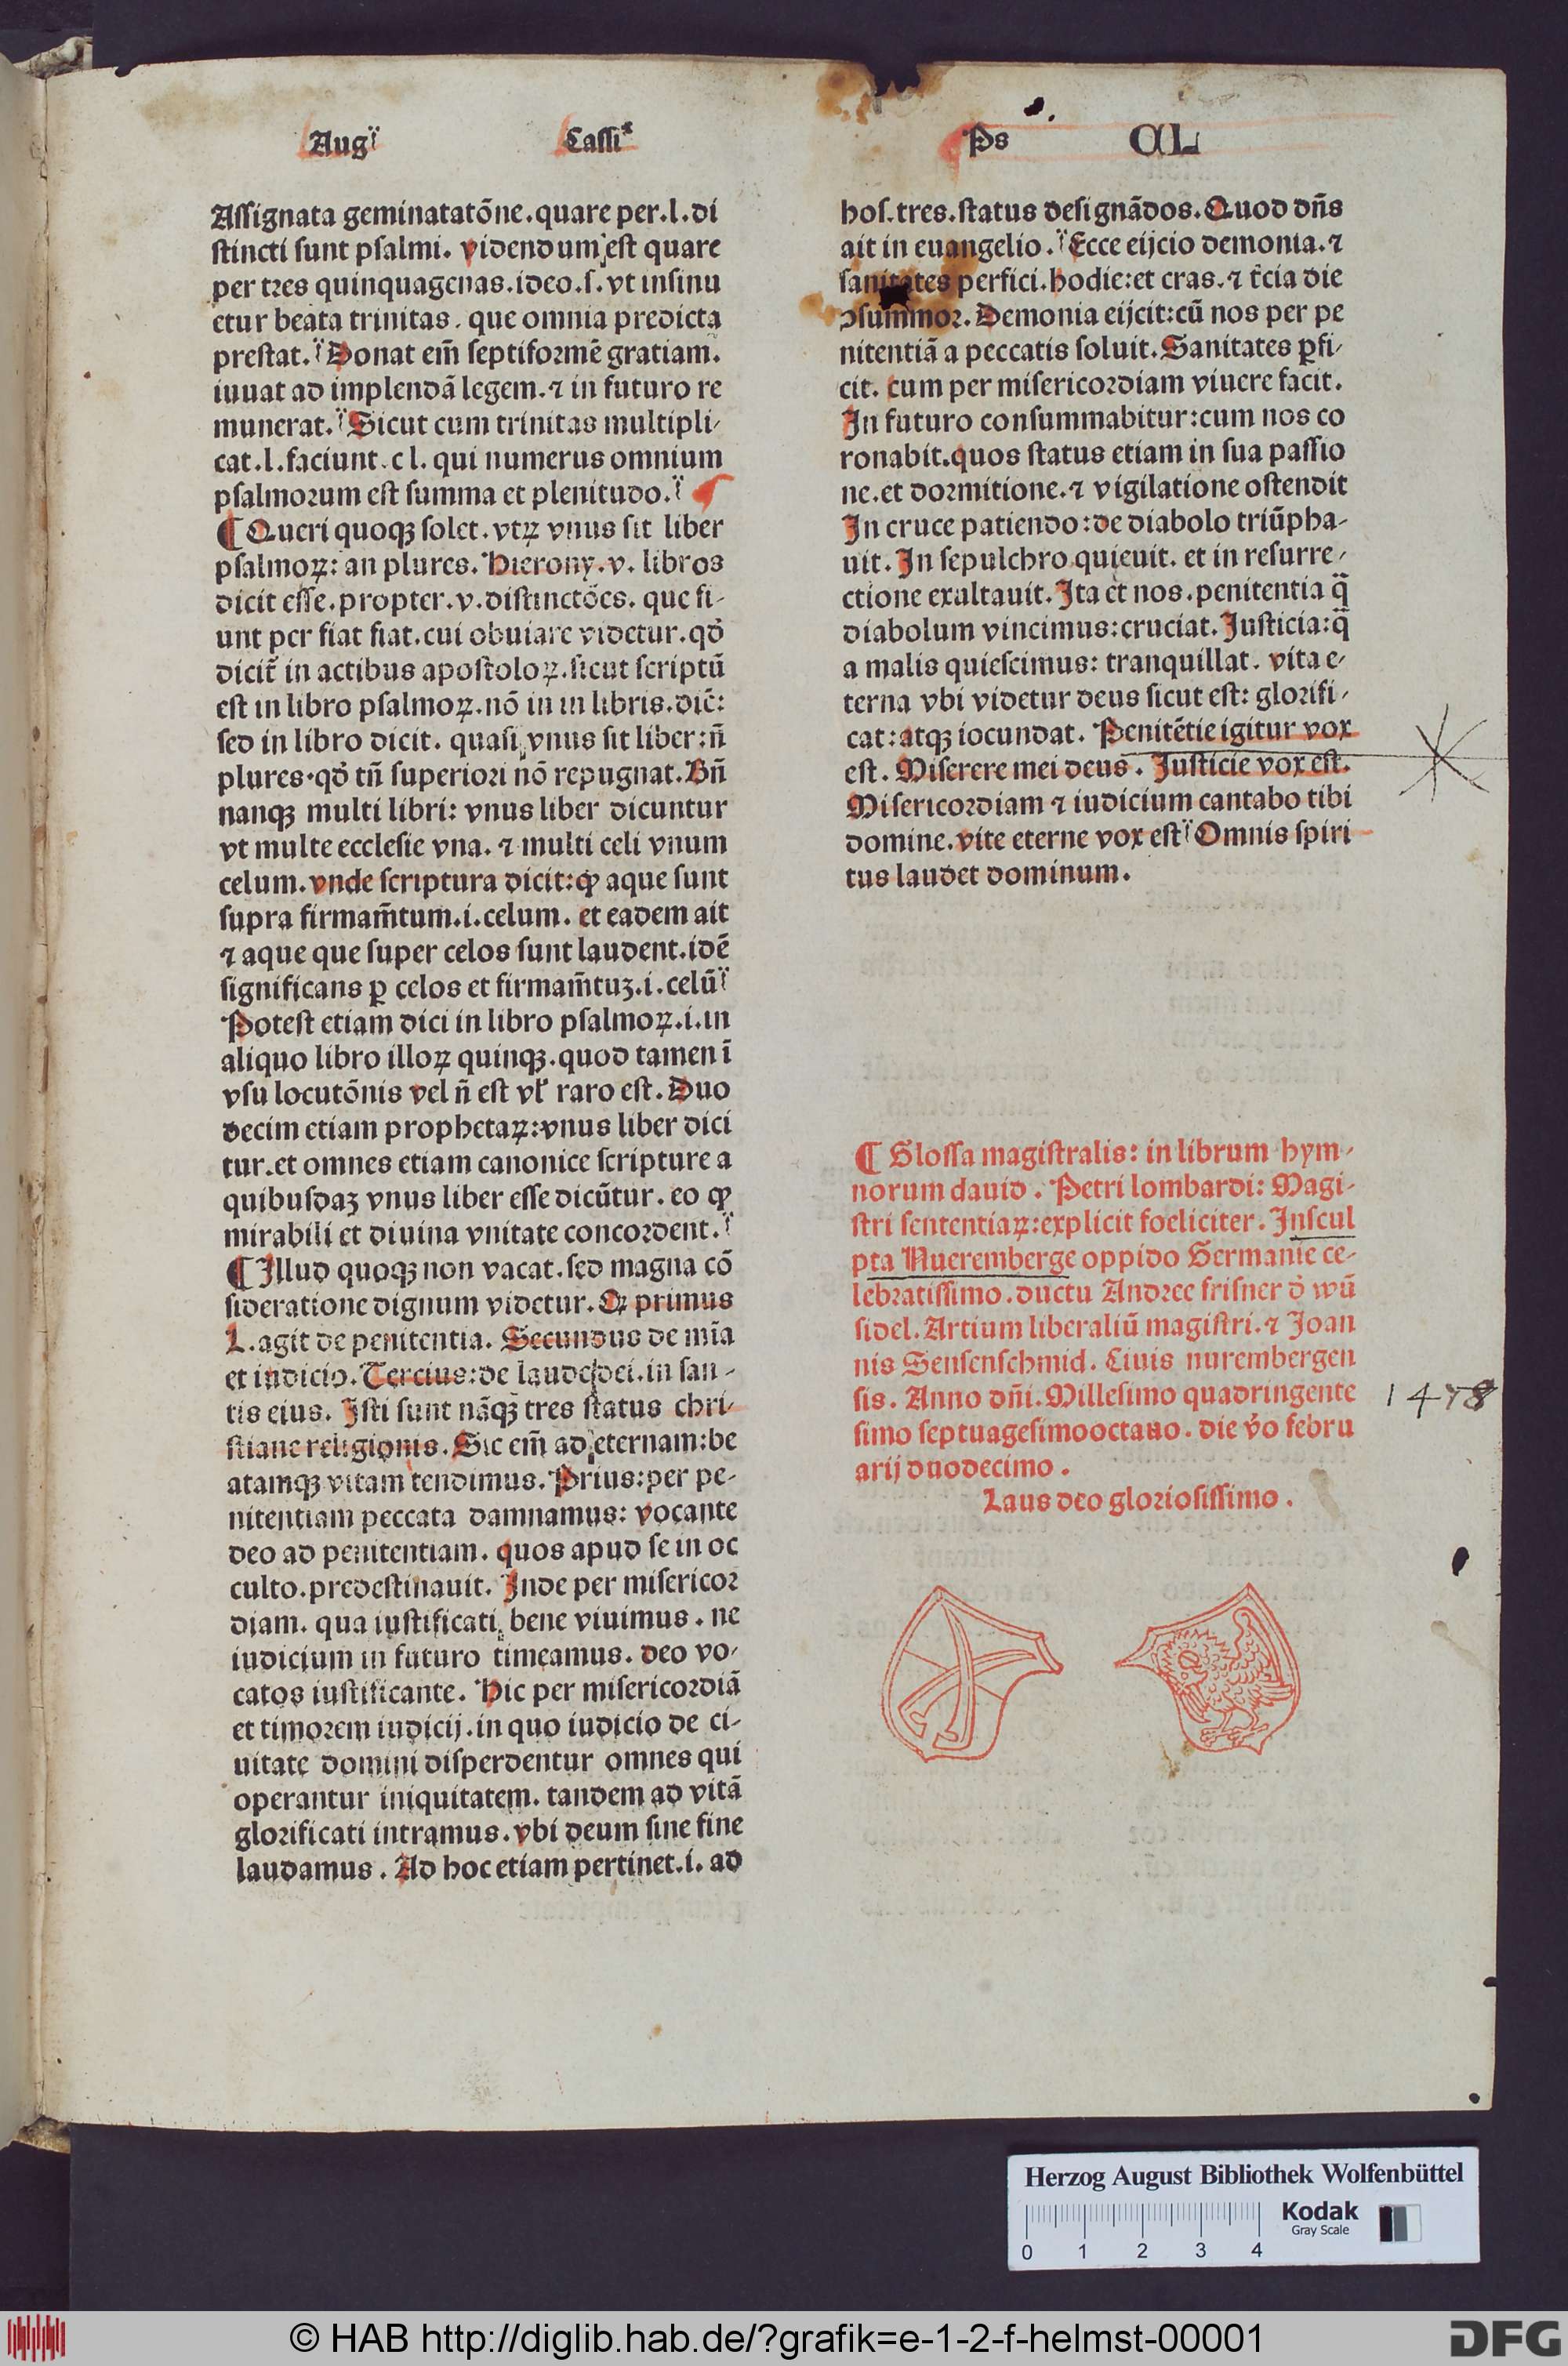 Augꝰ Caſſiꝰ
Ps CL
Aſſignata geminatatōne.quare per.l.di
ſtincti ſunt pſalmi. videndum eſt quare
per tres quinquagenas.ideo.ſ.vt inſinu
etur beata trinitas. que omnia predicta
preſtat. Donat em̄ ſeptiformē gratiam.
iuuat ad implendā legem.⁊ in futuro re
munerat. Sicut cum trinitas multipli⸗
cat.l.faciunt.cl. qui numerus omnium
pſalmorum eſt ſumma et plenitudo.
¶ Queri quoqꝫ ſolet.vtꝝ vnus ſit liber
pſalmoꝝ: an plures. Hierony.v. libros
dicit eſſe.propter.v.diſtinctōes. que fi⸗
unt per fiat fiat.cui obuiare videtur.qd̓
dicit̄ in actibus apoſtoloꝝ.ſicut ſcriptū
eſt in libro pſalmoꝝ.nō in in libris.dic̄:
ſed in libro dicit. quaſi vnus ſit liber:n̄
plures.qd̓ tn̄ ſuperiori nō repugnat.Bn̄
nanqꝫ multi libri: vnus liber dicuntur
vt multe eccleſie vna. ⁊ multi celi vnum
celum.vnde ſcriptura dicit:ꝙ aque ſunt
ſupra firmam̄tum.i.celum. et eadem ait
⁊ aque que ſuper celos ſunt laudent.idē
ſignificans ꝑ celos et firmam̄tuꝫ.i.celū
Poteſt etiam dici in libro pſalmoꝝ.i.in
aliquo libro illoꝝ quinqꝫ.quod tamen ī
vſu locutōnis vel n̄ eſt vl̓ raro eſt. Duo
decim etiam prophetaꝝ:vnus liber dici
tur.et omnes etiam canonice ſcripture a
quibuſdaꝫ vnus liber eſſe dicūtur. eo ꝙ
mirabili et diuina vnitate concordent.
¶ Illud quoqꝫ non vacat.ſed magna cō
ſideratione dignum videtur. Qꝝ primus
L.agit de penitentia. Secundus de mīa
et iudicio. Tercius:de laude dei.in ſan⸗
tis eius. Iſti ſunt nāqꝫ tres ſtatus chri⸗
ſtiane religionis. Sic em̄ ad eternam:be
atamqꝫ vitam tendimus. Prius:per pe⸗
nitentiam peccata damnamus: vocante
deo ad penitentiam. quos apud ſe in oc
culto.predeſtinauit. Inde per miſericor
diam. qua iuſtificati bene viuimus. ne
iudicium in futuro timeamus. deo vo⸗
catos iuſtificante. Hic per miſericordiā
et timorem iudicij.in quo iudicio de ci⸗
uitate domini diſperdentur omnes qui
operantur iniquitatem. tandem ad vitā
glorificati intramus.vbi deum ſine fine
laudamus. Ad hoc etiam pertinet.i. ad
hoſ.tres.ſtatus deſignādos.Quod dn̄s
ait in euangelio. Ecce eijcio demonia.⁊
ſanitates perfici.hodie:et cras.⁊ t̄cia die
ↄſummor. Demonia eijcit:cū nos per pe
nitentiā a peccatis ſoluit. Sanitates ꝑfi⸗
cit. cum per miſericordiam viuere facit.
In futuro conſummabitur:cum nos co
ronabit.quos ſtatus etiam in ſua paſſio
ne.et dormitione.⁊ vigilatione oſtendit
In cruce patiendo:de diabolo triūpha⸗
uit. In ſepulchro quieuit. et in reſurre⸗
ctione exaltauit. Ita et nos.penitentia q̄
diabolum vincimus:cruciat. Iuſticia:q̄
a malis quieſcimus: tranquillat. vita e⸗
terna vbi videtur deus ſicut eſt: glorifi⸗
cat:atqꝫ iocundat. Penitētie igitur vox
eſt. Miſerere mei deus. Iuſticie vox eſt.
Miſericordiam ⁊ iudicium cantabo tibi
domine.vite eterne vox eſt Omnis ſpiri
tus laudet dominum.
¶ Gloſſa magiſtralis: in librum hym⸗
norum dauid. Petri lombardi: Magi⸗
ſtri ſententiaꝝ:explicit foeliciter. Inſcul
pta Nueremberge oppido Germanie ce⸗
lebratiſſimo.ductu Andree friſner d̓ wū
ſidel. Artium liberaliū magiſtri.⁊ Joan
nis Senſenſchmid. Ciuis nurembergen
ſis. Anno dn̄i.Milleſimo quadringente
ſimo ſeptuageſimooctauo. die v̓o febru
arij duodecimo.
Laus deo glorioſiſſimo.
1478
Herzog August Bibliothek Wolfenbüttel
0 1 2 3 4
Kodak
Gray Scale
© HAB http://diglib.hab.de/?grafik=e-1-2-f-helmst-00001
DFG